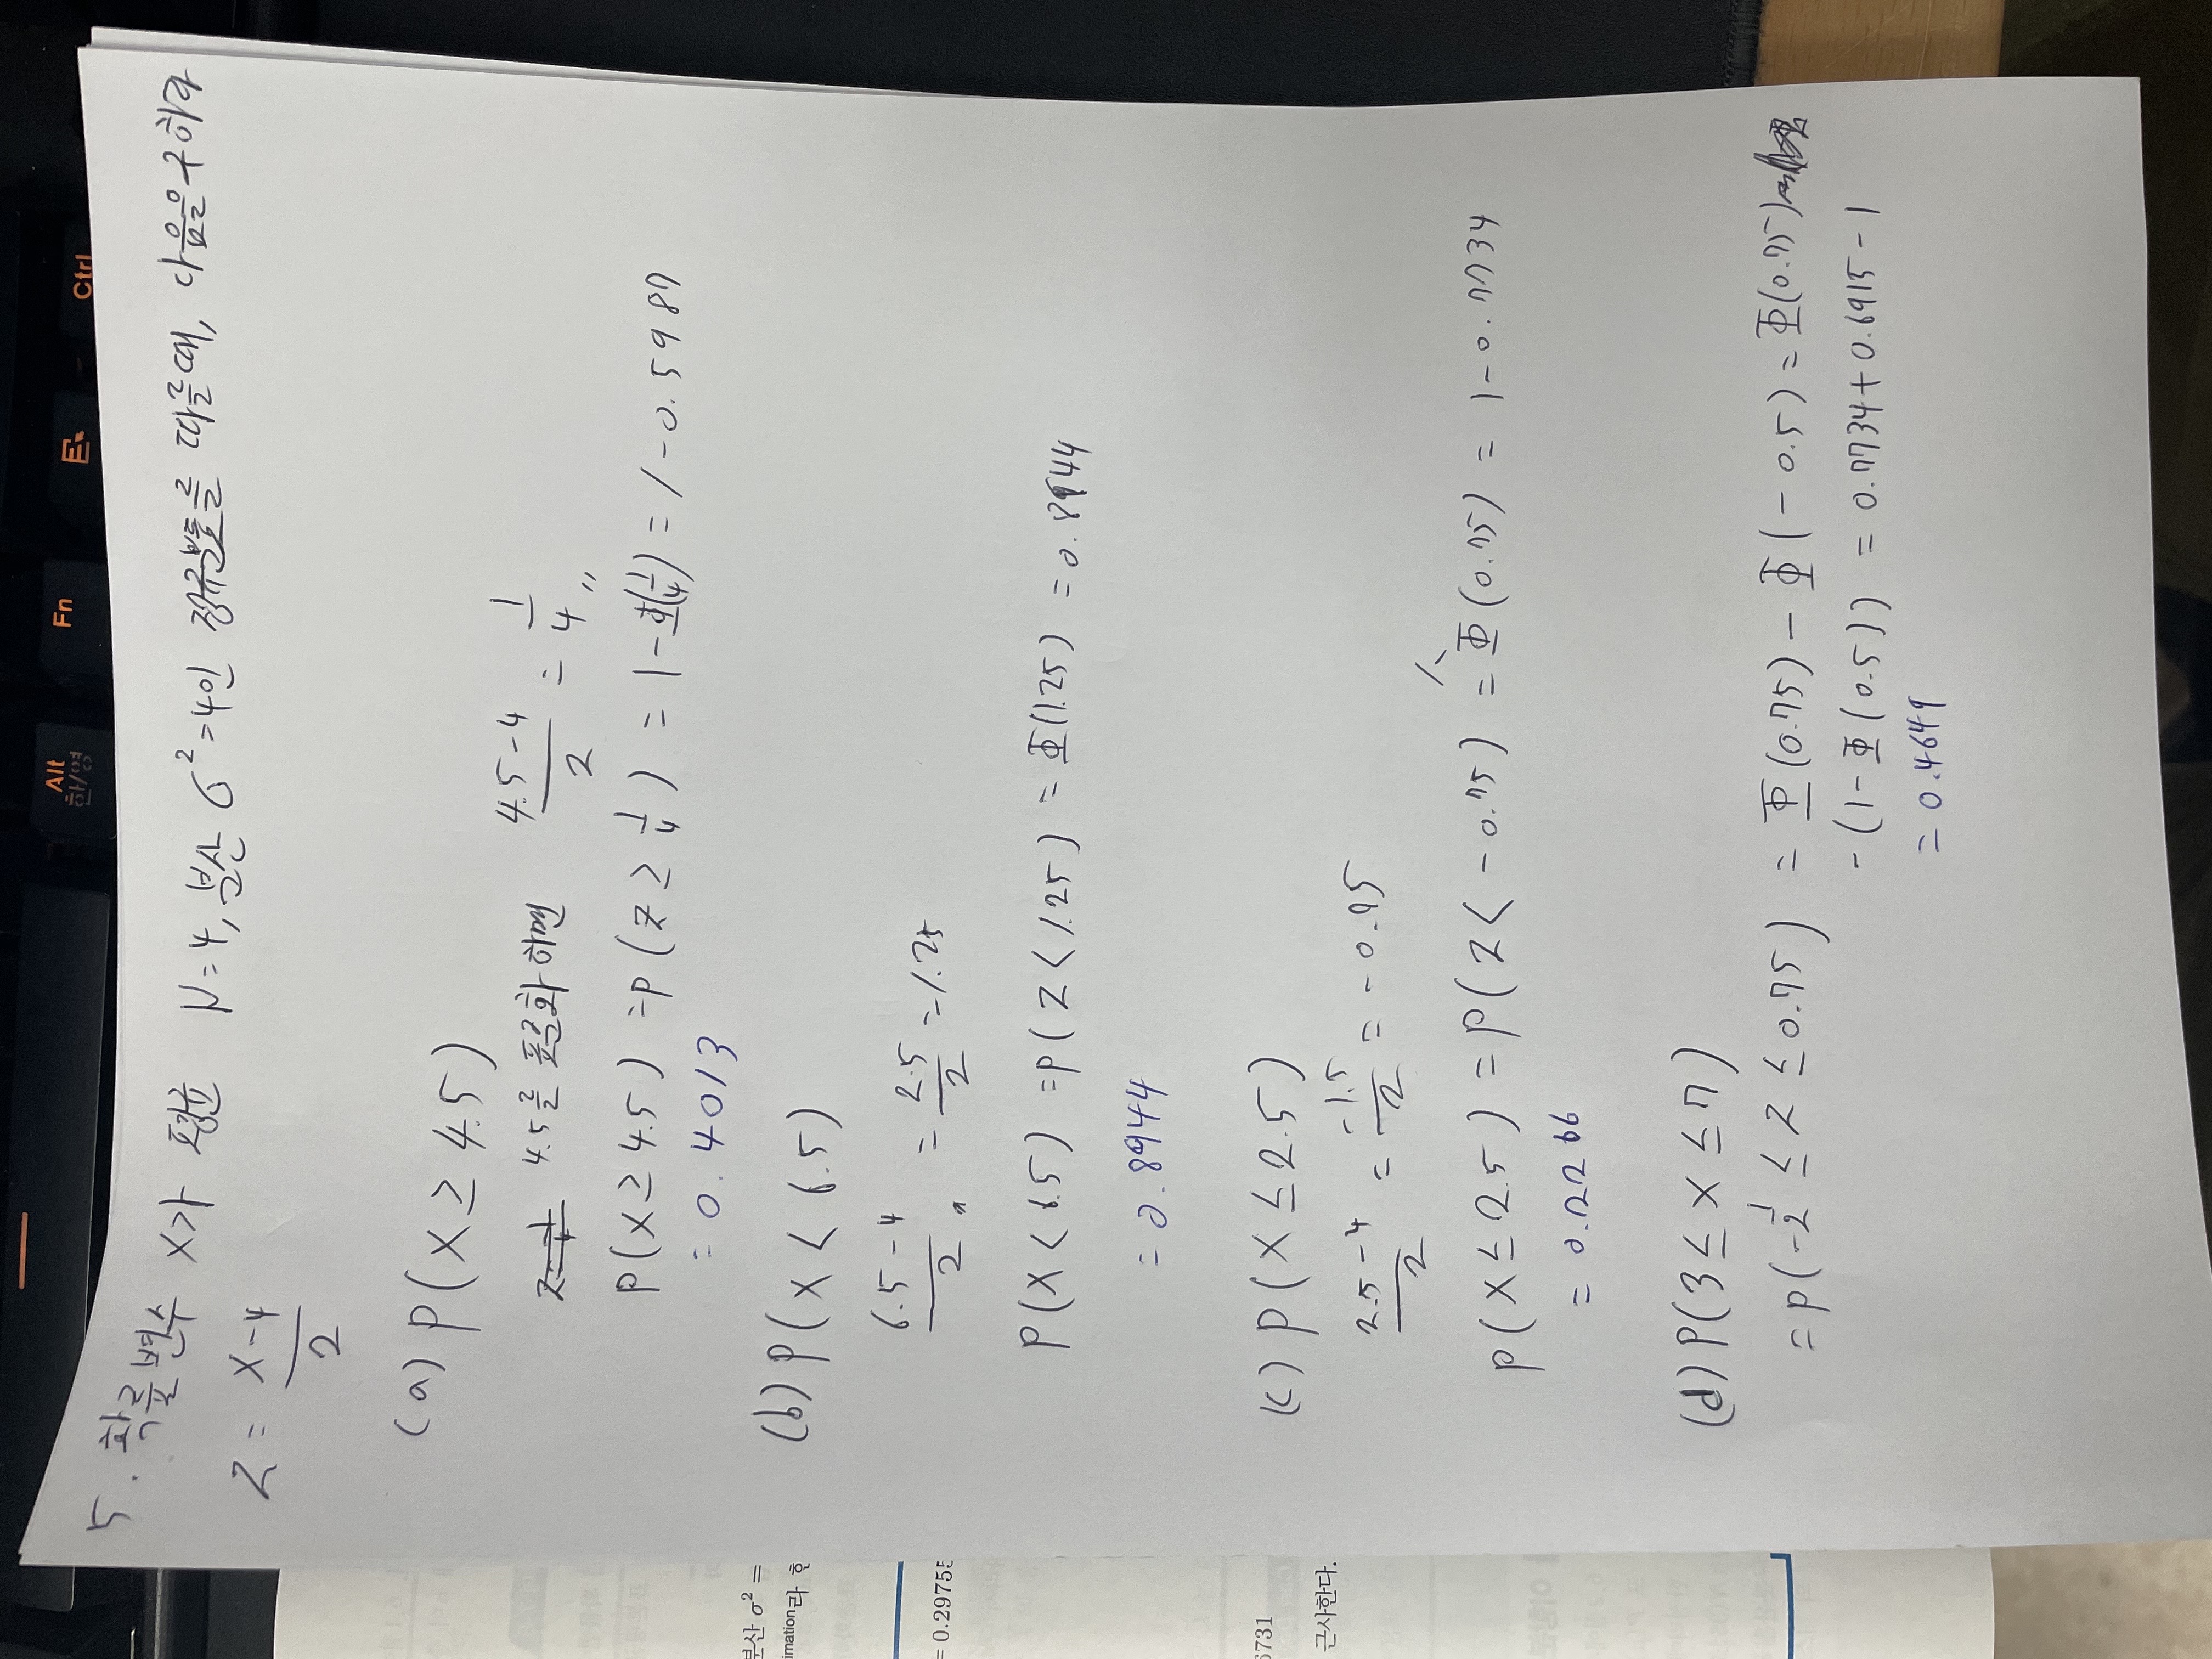 5. 확률변수 X가 평균 N=4, 분산 σ²=4인 정규분포를 따를때, 다음을 구하라
Z = X-4 / 2
(a) P(X ≥ 4.5)
4.5를 표준화 하면 4.5-4 / 2 = 1/4 〃
P(X ≥ 4.5) = P(Z ≥ 1/4) = 1-Φ(1/4) = 1-0.5987
= 0.4013
(b) P(X < 6.5)
6.5-4 / 2 〃 = 2.5/2 = 1.25
P(X < 6.5) = P(Z < 1.25) = Φ(1.25) = 0.8944
= 0.8944
(c) P(X ≤ 2.5)
2.5-4 / 2 = -1.5/2 = -0.75
P(X ≤ 2.5) = P(Z < -0.75) = 1-Φ(0.75) = 1-0.7734
= 0.2266
(d) P(3 ≤ X ≤ 7)
= P(-1/2 ≤ Z ≤ 0.75) = Φ(0.75) - Φ(-0.5) = Φ(0.75)
-(1-Φ(0.5)) = 0.7734+0.6915-1
= 0.4649
Ctrl
Fn
Alt
한/영
분산 σ² =
imation라 한
= 0.29755
6731
근사한다.